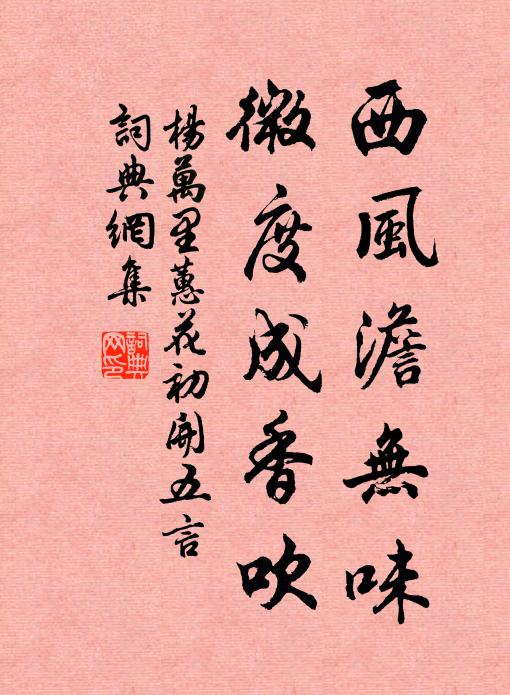 西風澹無味
微度成香吹
楊萬里蕙花初開五言
詞典網集
詞典
网印